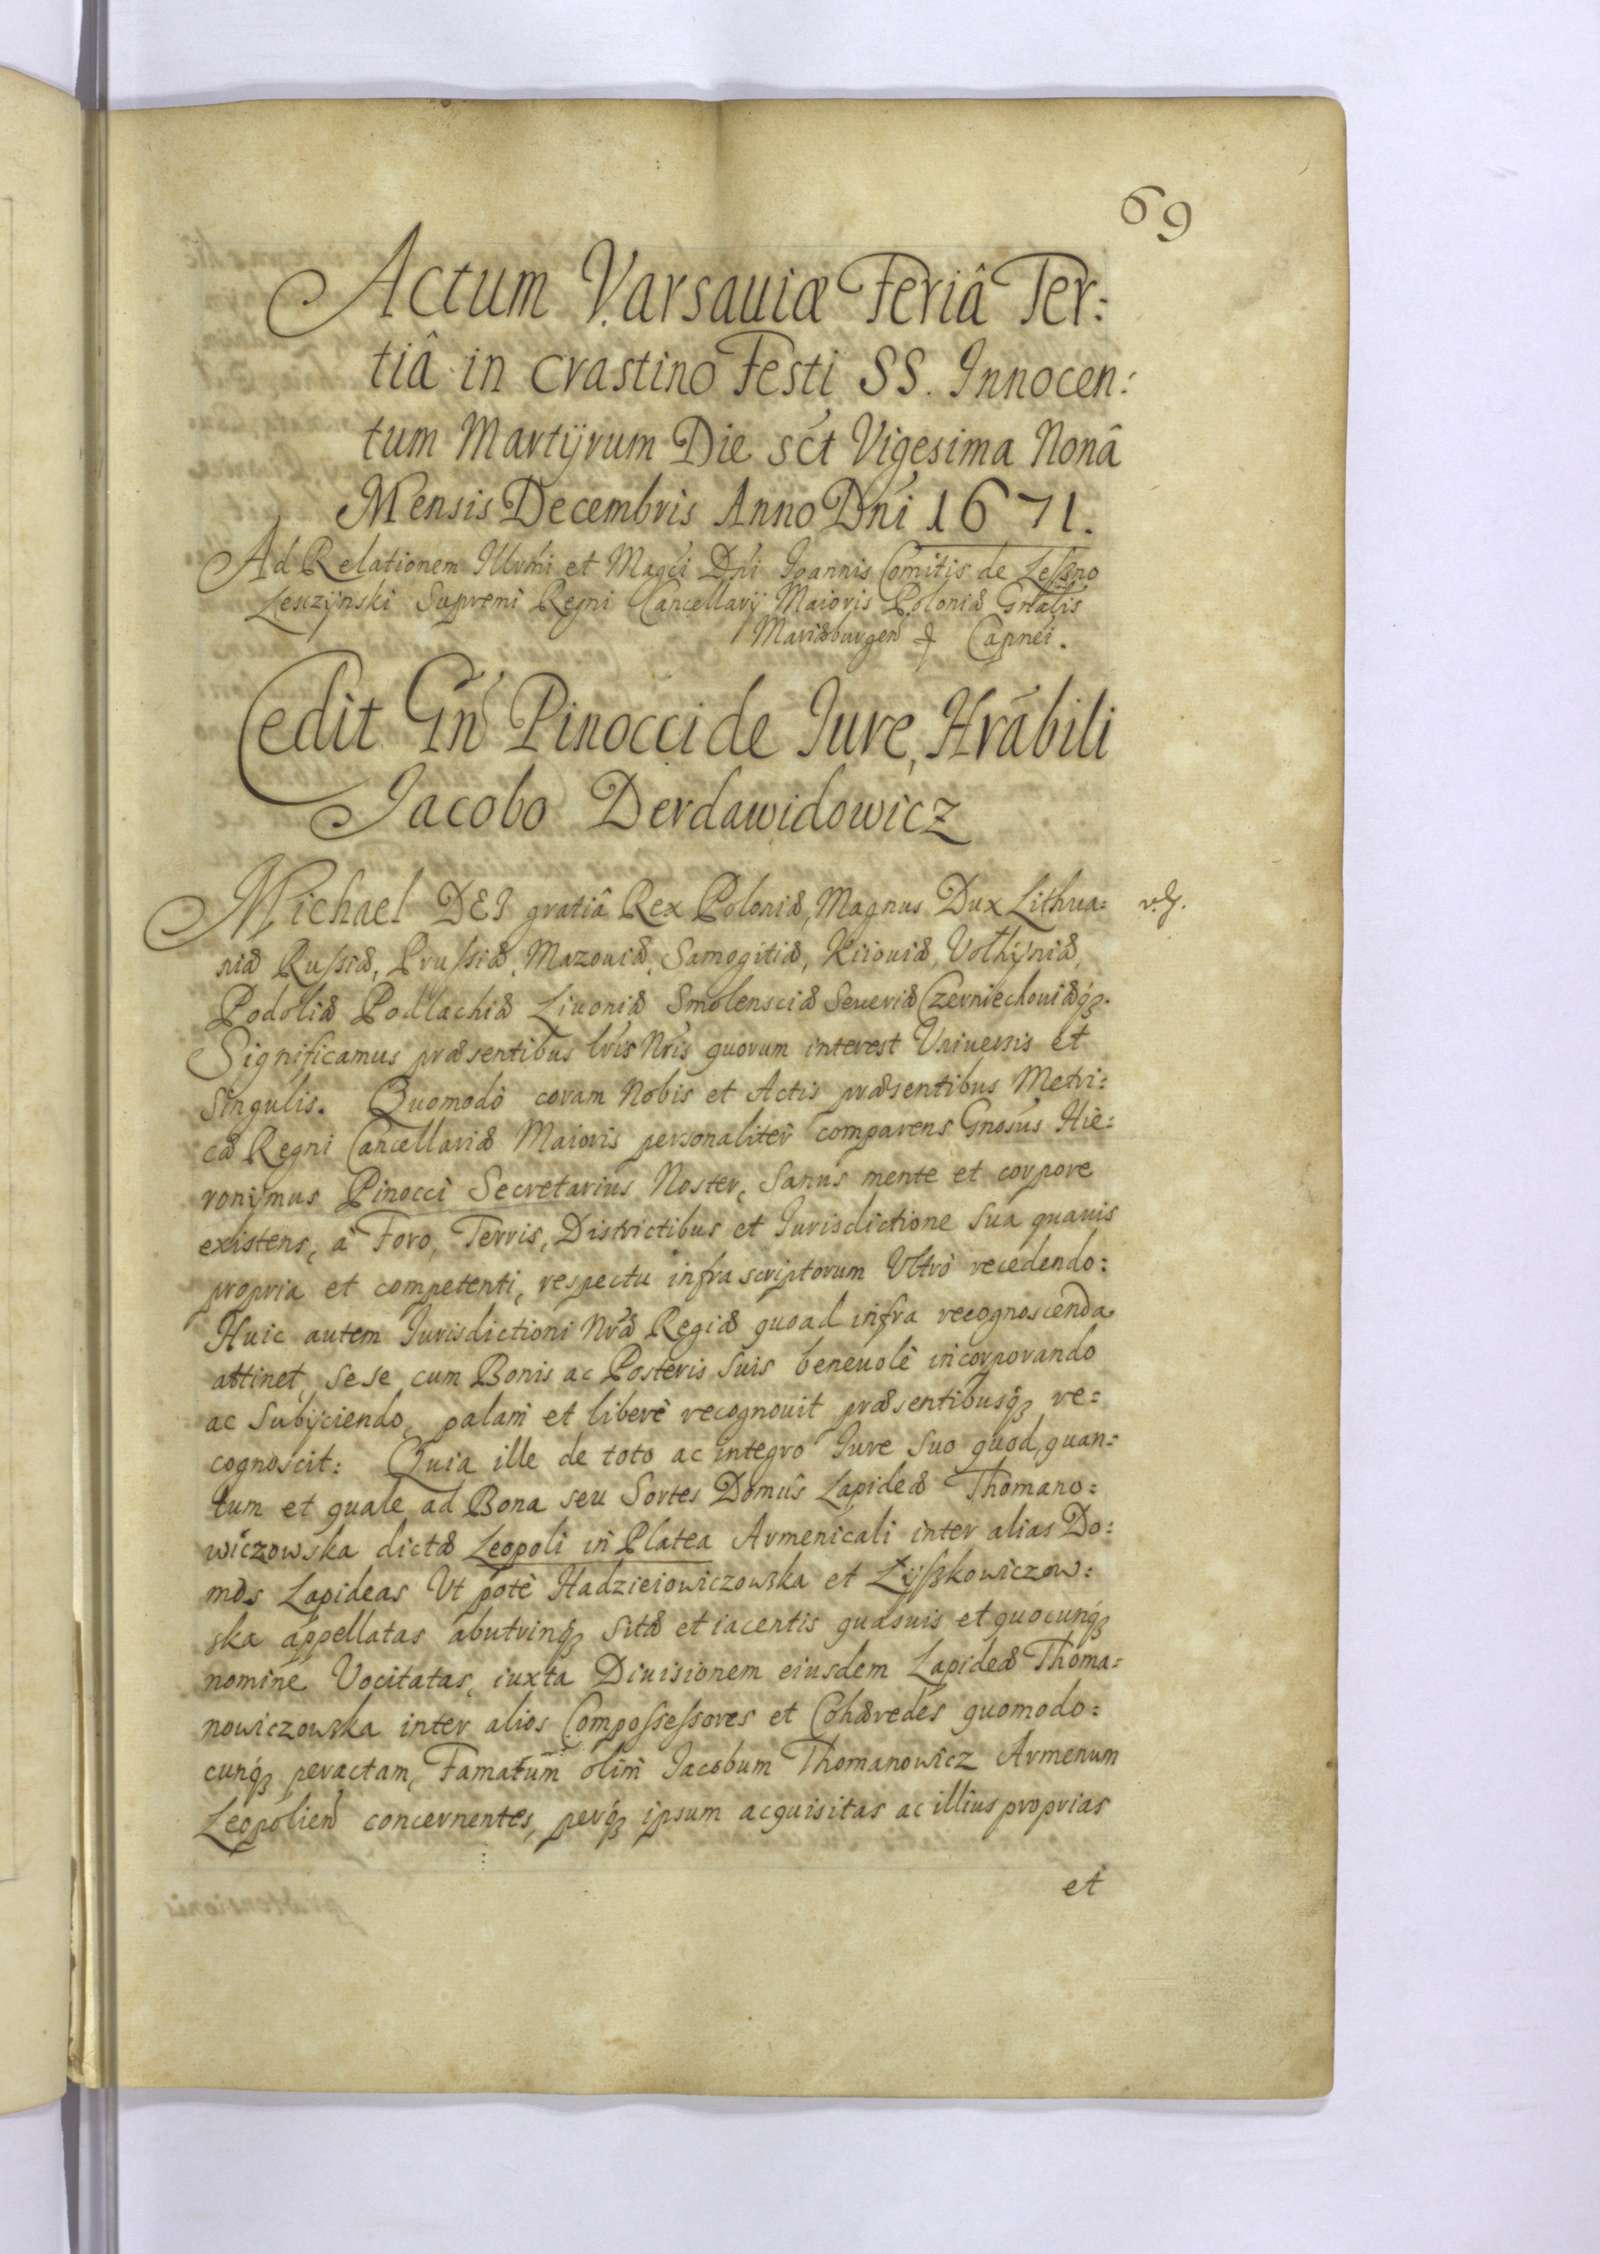 69
Actum Varsauiæ Feriâ Ter:
tiâ in crastino Festi SS. Innocen:
tum Martÿrum Die sct Vigesima Nonâ
Mensis Decembris Anno Dni 1671.
Ad Relationem Illrmi et Magci Dni Joannis Comitis de Leszno
Lesczÿnski Supremi Regni Cancellarÿ Maioris Poloniæ Gnalis
Mariæburgen & Capnei.
Cedit Gn Pinocci de Iure, Hrabili
Jacobo Derdawidowicz
Michael DEI gratiâ Rex Poloniæ, Magnus Dux Lithua:
niæ Russiæ, Prussiæ, Mazouiæ, Samogitiæ, Kiiouiæ, Volhÿniæ,
Podoliæ Podlachiæ Liuoniæ Smolensciæ Seueriæ Czerniechouiæq́ꝫ.
Significamus præsentibus lris Nris quorum interest Vniuersis et
Singulis. Quomodò coram Nobis et Actis præsentibus Metri:
cæ Regni Cancellariæ Maioris personalitèr comparens Gnosus Hie:
ronÿmus Pinocci Secretarius Noster, Sanus mente et corpore
existens, à Foro, Terris, Districtibus et Iurisdictione Sua quauis
propria et competenti, respectu infra scriptorum Vltrò recedendo:
Huic autem Jurisdictioni Nræ Regiæ quoad infra recognoscenda
attinet, Se se cum Bonis ac Posteris Suis beneuolè incorporando
ac Subÿciendo, palam et liberè recognouit præsentibusq́ꝫ re:
cognoscit: Quia ille de toto ac integro Iure Suo quod, quan:
tum et quale ad Bona seu Sortes Domûs Lapideæ Thomano:
wiczowska dictæ Leopoli in Platea Armenicali inter alias Do:
mos Lapideas Vt potè Hadzieiowiczowska et Lÿszkowiczow:
ska appellatas abutrinq́ꝫ Sitæ et iacentis quasuis et quocunq́ꝫ
nomine Vocitatas, iuxta Diuisionem eiusdem Lapideæ Thoma:
nowiczowska inter alios Compossessores et Cohæredes quomodo:
cunq́ꝫ peractam, Famatum olim Jacobum Thomanowicz Armenum
Leopolien concernentes, perq́ꝫ ipsum acquisitas ac illius proprias
et